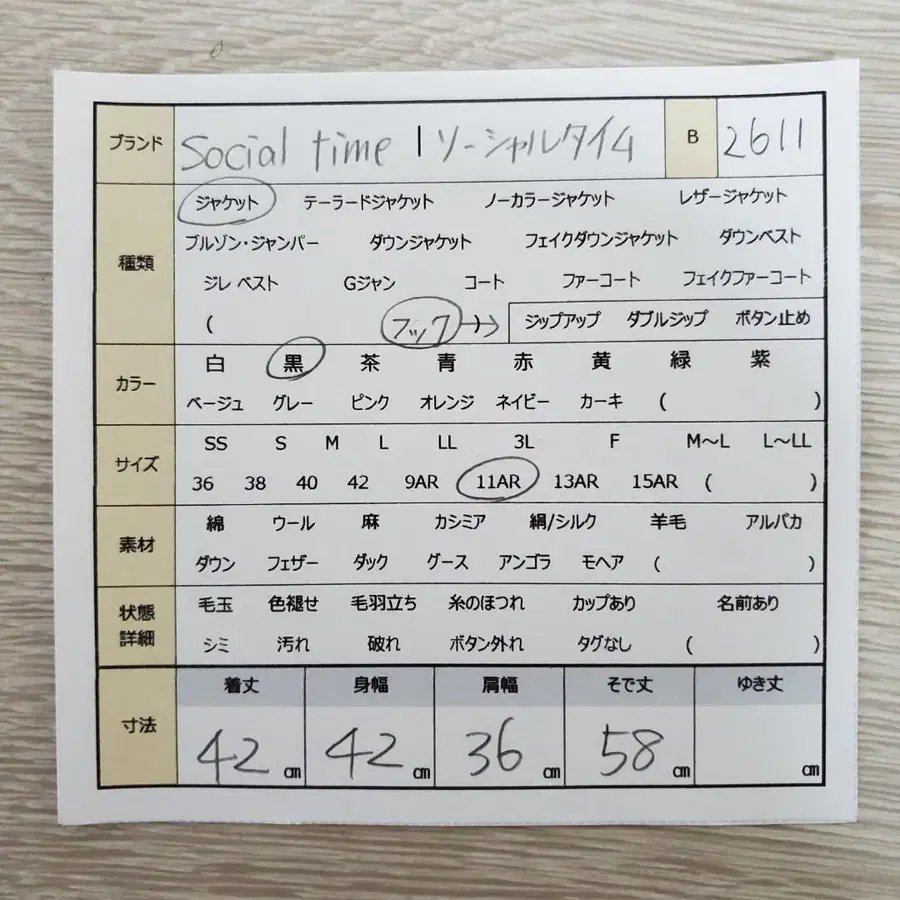 ブランド Social time | ソーシャルタイム B 2611
種類 ジャケット テーラードジャケット ノーカラージャケット レザージャケット
ブルゾン・ジャンパー ダウンジャケット フェイクダウンジャケット ダウンベスト
ジレ ベスト Gジャン コート ファーコート フェイクファーコート
( フック →→ ジップアップ ダブルジップ ボタン止め
カラー 白 黒 茶 青 赤 黄 緑 紫
ベージュ グレー ピンク オレンジ ネイビー カーキ ( )
サイズ SS S M L LL 3L F M～L L～LL
36 38 40 42 9AR 11AR 13AR 15AR ( )
素材 綿 ウール 麻 カシミア 絹/シルク 羊毛 アルパカ
ダウン フェザー ダック グース アンゴラ モヘア ( )
状態詳細 毛玉 色褪せ 毛羽立ち 糸のほつれ カップあり 名前あり
シミ 汚れ 破れ ボタン外れ タグなし ( )
寸法 着丈 身幅 肩幅 そで丈 ゆき丈
42 cm 42 cm 36 cm 58 cm cm